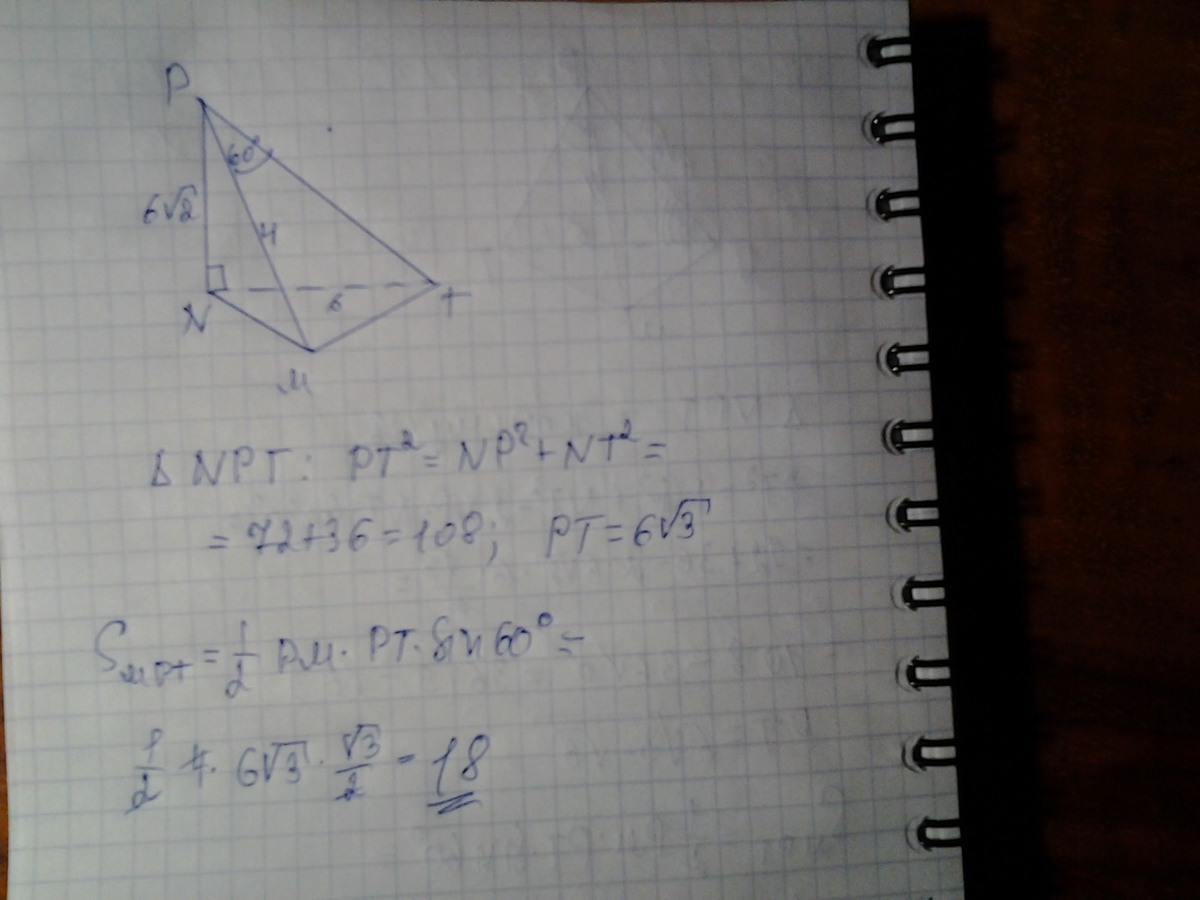 P
60°
6√2
4
N
6
T
M
Δ NPT: PT² = NP² + NT² =
= 72+36 = 108; PT = 6√3
S_MPT = 1/2 PM · PT · Sin 60° =
1/2 4 · 6√3 · √3/2 = 18